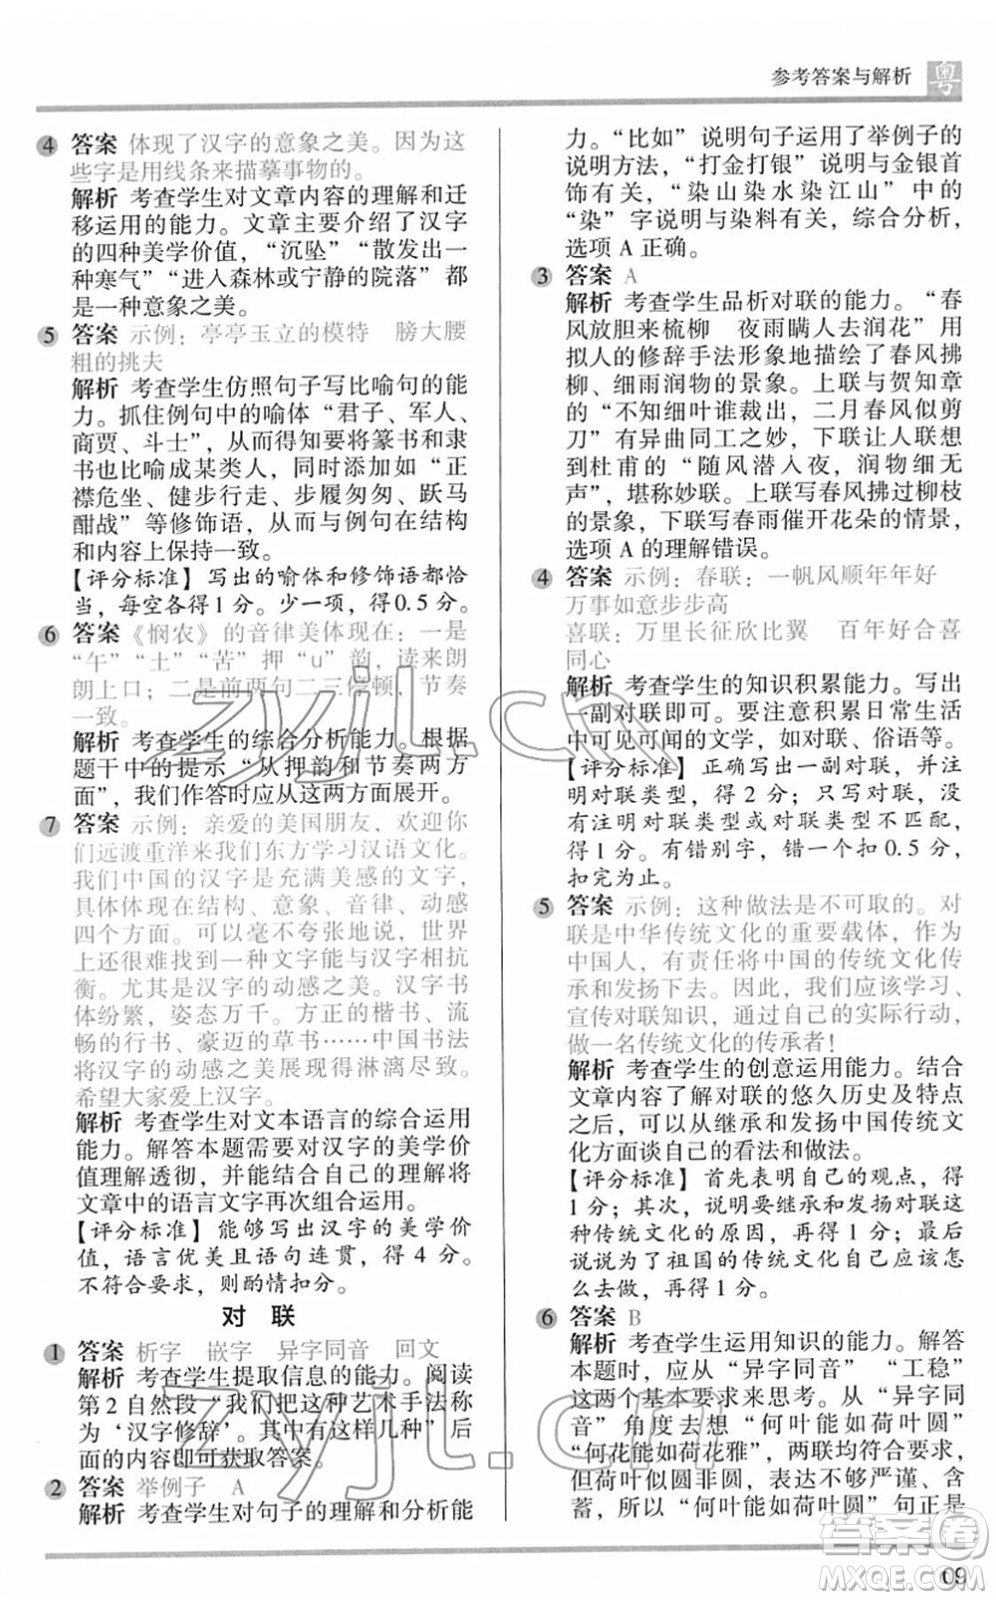 参考答案与解析 粤
4 答案 体现了汉字的意象之美。因为这
些字是用线条来描摹事物的。
解析 考查学生对文章内容的理解和迁
移运用的能力。文章主要介绍了汉字
的四种美学价值，“沉坠”“散发出一
种寒气”“进入森林或宁静的院落”都
是一种意象之美。
5 答案 示例：亭亭玉立的模特 膀大腰
粗的挑夫
解析 考查学生仿照句子写比喻句的能
力。抓住例句中的喻体“君子、军人、
商贾、斗士”，从而得知要将篆书和隶
书也比喻成某类人，同时添加如“正
襟危坐、健步行走、步履匆匆、跃马
酣战”等修饰语，从而与例句在结构
和内容上保持一致。
【评分标准】写出的喻体和修饰语都恰
当，每空各得1分。少一项，得0.5分。
6 答案 《悯农》的音律美体现在：一是
“午”“土”“苦”押“u”韵，读来朗
朗上口；二是前两句二三停顿，节奏
一致。
解析 考查学生的综合分析能力。根据
题干中的提示“从押韵和节奏两方
面”，我们作答时应从这两方面展开。
7 答案 示例：亲爱的美国朋友，欢迎你
们远渡重洋来我们东方学习汉语文化。
我们中国的汉字是充满美感的文字，
具体体现在结构、意象、音律、动感
四个方面。可以毫不夸张地说，世界
上还很难找到一种文字能与汉字相抗
衡。尤其是汉字的动感之美。汉字书
体纷繁，姿态万千。方正的楷书、流
畅的行书、豪迈的草书……中国书法
将汉字的动感之美展现得淋漓尽致。
希望大家爱上汉字。
解析 考查学生对文本语言的综合运用
能力。解答本题需要对汉字的美学价
值理解透彻，并能结合自己的理解将
文章中的语言文字再次组合运用。
【评分标准】能够写出汉字的美学价
值，语言优美且语句连贯，得4分。
不符合要求，则酌情扣分。
对联
1 答案 析字 嵌字 异字同音 回文
解析 考查学生提取信息的能力。阅读
第2自然段“我们把这种艺术手法称
为‘汉字修辞’。其中有这样几种”后
面的内容即可获取答案。
2 答案 举例子 A
解析 考查学生对句子的理解和分析能
力。“比如”说明句子运用了举例子的
说明方法，“打金打银”说明与金银首
饰有关，“染山染水染江山”中的
“染”字说明与染料有关，综合分析，
选项A正确。
3 答案 A
解析 考查学生品析对联的能力。“春
风放胆来梳柳 夜雨瞒人去润花”用
拟人的修辞手法形象地描绘了春风拂
柳、细雨润物的景象。上联与贺知章
的“不知细叶谁裁出，二月春风似剪
刀”有异曲同工之妙，下联让人联想
到杜甫的“随风潜入夜，润物细无
声”，堪称妙联。上联写春风拂过柳枝
的景象，下联写春雨催开花朵的情景，
选项A的理解错误。
4 答案 示例：春联：一帆风顺年年好
万事如意步步高
喜联：万里长征欣比翼 百年好合喜
同心
解析 考查学生的知识积累能力。写出
一副对联即可。要注意积累日常生活
中可见可闻的文学，如对联、俗语等。
【评分标准】正确写出一副对联，并注
明对联类型，得2分；只写对联，没
有注明对联类型或对联类型不匹配，
得1分。有错别字，错一个扣0.5分，
扣完为止。
5 答案 示例：这种做法是不可取的。对
联是中华传统文化的重要载体，作为
中国人，有责任将中国的传统文化传
承和发扬下去。因此，我们应该学习、
宣传对联知识，通过自己的实际行动，
做一名传统文化的传承者！
解析 考查学生的创意运用能力。结合
文章内容，了解对联的悠久历史及特
点，以便从继承和发扬中国传统文
化方面谈自己的看法和做法。
【评分标准】首先表明自己的观点，得
1分；其次，说明要继承和发扬对联这
种传统文化的原因，再得1分；最后
说说为了祖国的传统文化自己应该怎
么去做，再得1分。
6 答案 B
解析 考查学生运用知识的能力。解答
本题时，应从“异字同音”“工稳”
这两个基本要求来思考。从“异字同
音”角度去想“何叶能如荷叶圆”
“何花能如荷花雅”，两联均符合要求，
但荷叶似圆非圆，表达不够严谨、含
蓄，所以“何叶能如荷叶圆”句正是
zyjl.cn
zyjl.cn
答案圈
MXQE.COM
09